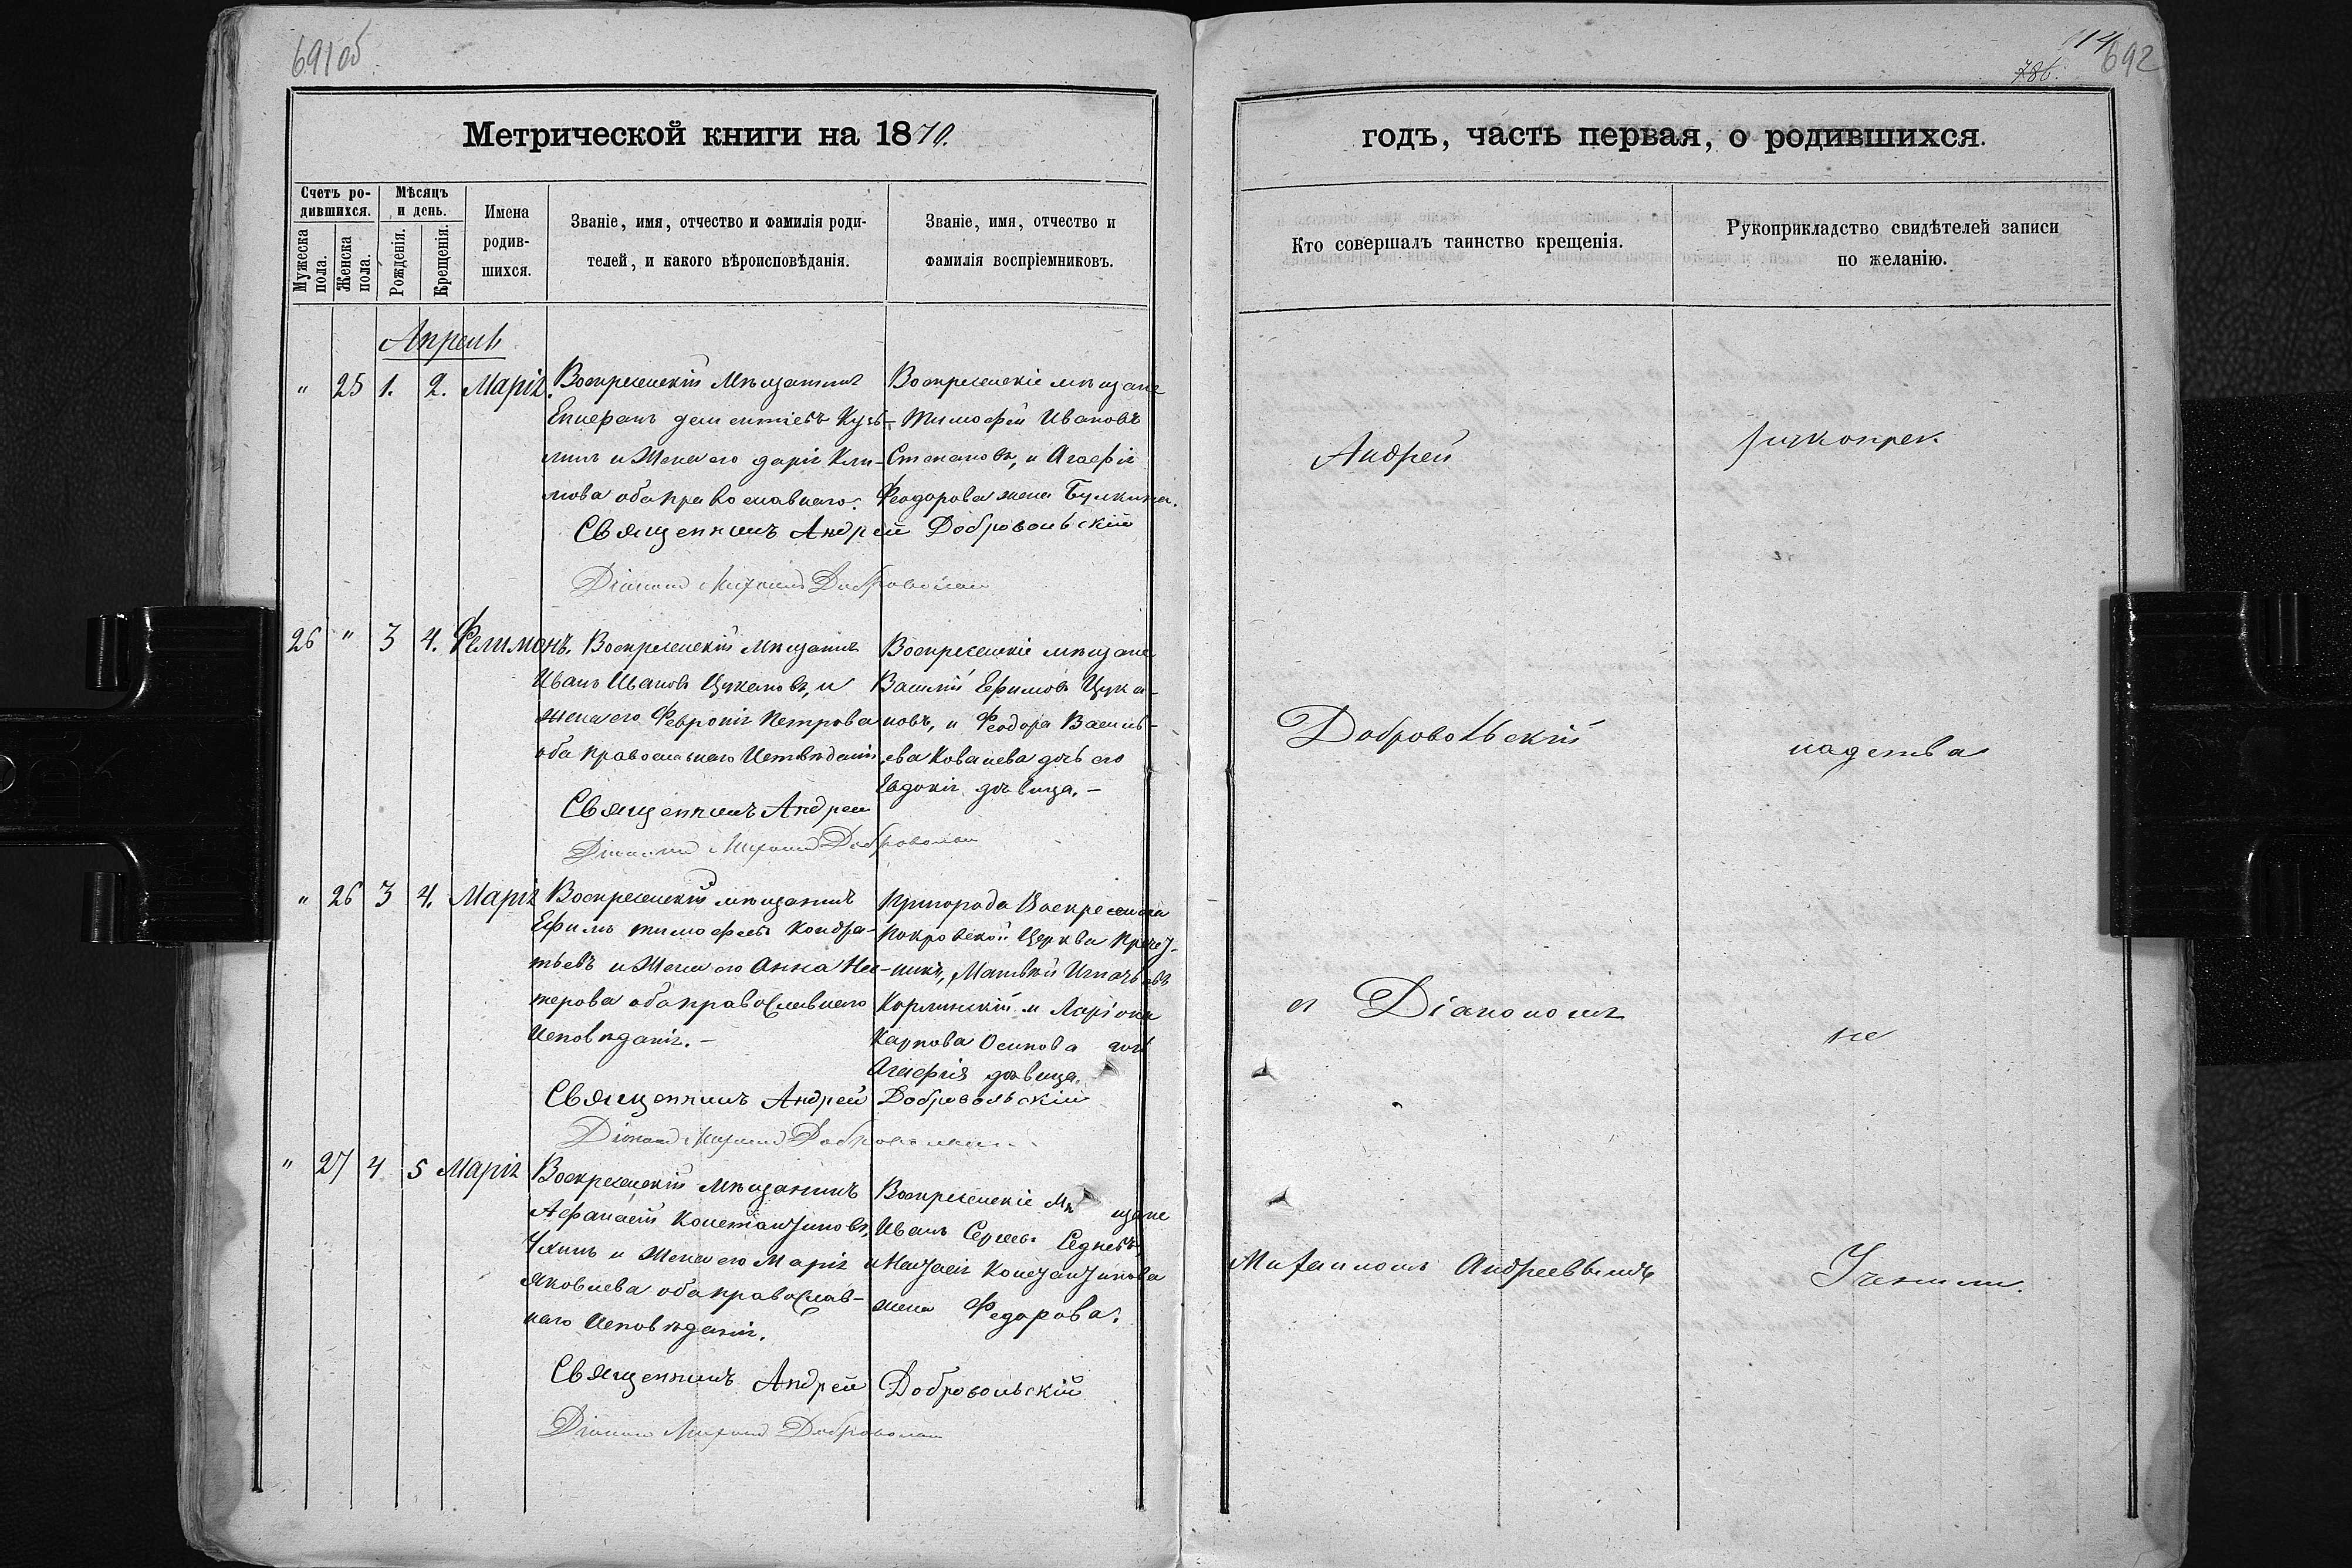 691об
14
786.
692
Метрической книги на 1870.
годъ, часть первая, о родившихся.
Счетъ ро-
дившихся.
Мужеска
пола.
Женска
пола.
Мѣсяцъ
и день.
Рожденія.
Крещенія.
Имена
родив-
шихся.
Званіе, имя, отчество и фамилія роди-
телей, и какого вѣроисповѣданія.
Званіе, имя, отчество и
фамилія воспріемниковъ.
Кто совершалъ таинство крещенія.
Рукоприкладство свидѣтелей записи
по желанію.
Апрель
" 25 1. 2. Марія.
Воскресенскій Мѣщанинъ
дементіевъ Кузь-
минъ и Жена его дарія Кли-
мова оба православнаго.
Воскресенскіе мѣщане
Тимофей Ивановъ
Степановъ, и Агафія
Феодорова жена Булкина.
Священникъ Андрей Добровольскій
Діаконъ Михаилъ Добровольскій
26 " 3 4. Филимонъ.
Воскресенскій мѣщанинъ
Иванъ Ивановъ Цукановъ, и
жена его Февронія Петрова
оба православнаго Исповѣданія
Воскресенскіе мѣщане
Василій Ефимовъ Цука-
новъ, и Феодора Василь-
ева Ковалева дочь его
Евдокія дѣвица. -
Священникъ Андрей
Діаконъ Михаилъ Добровольскій
" 26 3 4. Марія
Воскресенскій мѣщанинъ
Ефимъ тимофеевъ Кондра-
тьевъ и Жена его Анна Не-
терова оба православнаго
Исповѣданія. -
Пригорода Воскресенска
Покровской Церкви Причет-
никъ, Матвѣй Игнатьевъ
Кормлинскій и Ларіона
Карпова Осипова дочь
Агафія дѣвица.
Священникъ Андрей Добровольскій
Діаконъ Михаилъ Добровольскій
" 27 4 5 Марія
Воскресенскій Мѣщанинъ
Афанасій Константиновъ
и Жена его Марія
Яковлева оба православ-
наго Исповѣданія.
Воскресенскіе Мѣщане
Иванъ Сергеевъ
и Настасія Константинова
жена Федорова.
Священникъ Андрей Добровольскій
Діаконъ Михаилъ Добровольскій
Андрей
Добровольскій
съ Діакономъ
Михаиломъ Андреевымъ
рукоприк.
ладства
не
Учинили.